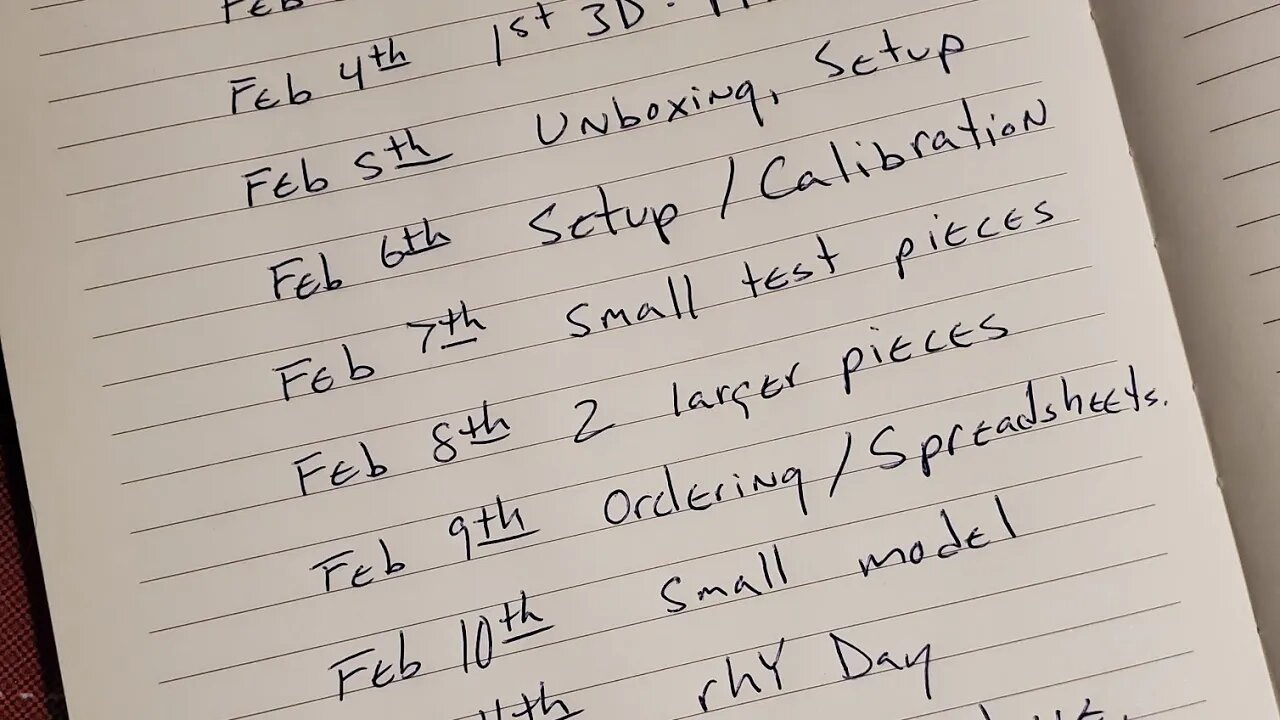 Feb
Feb 4th 1st 3D
Feb 5th Unboxing, Setup
Feb 6th Setup / Calibration
Feb 7th Small test pieces
Feb 8th 2 larger pieces
Feb 9th Ordering / Spreadsheets.
Feb 10th Small model
11th rhY Day